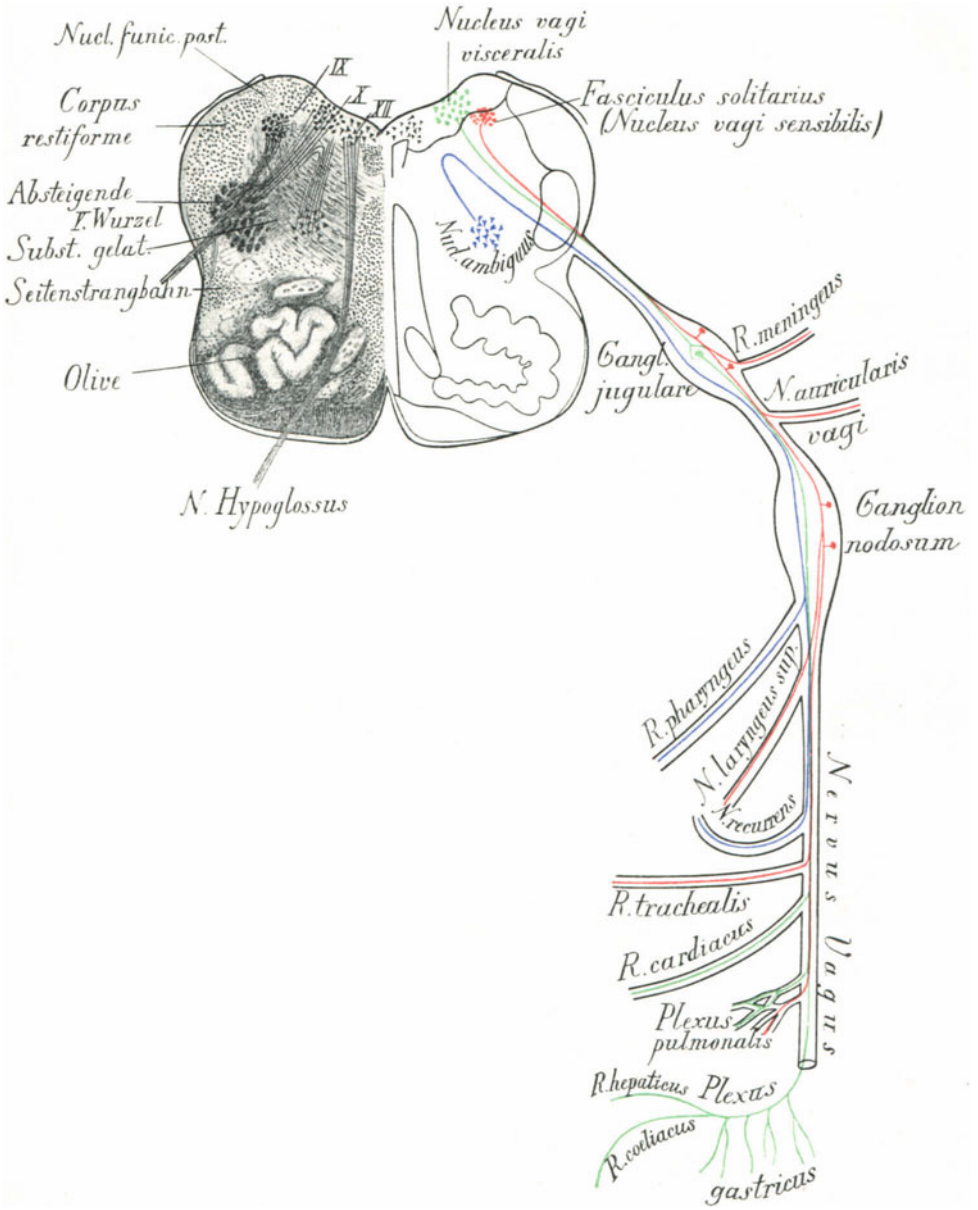 Nucl. funic. post.
Corpus
restiforme
Absteigende
V. Wurzel
Subst. gelat.
Seitenstrangbahn
Olive
N. Hypoglossus
IX
X
XII
Nucleus vagi
visceralis
Fasciculus solitarius
(Nucleus vagi sensibilis)
Nucl. ambiguus
Gangl.
jugulare
R. meningeus
N. auricularis
vagi
Ganglion
nodosum
R. pharyngeus
N. laryngeus sup.
N. recurrens
R. trachealis
R. cardiacus
Plexus
pulmonalis
Nervus Vagus
R. hepaticus
Plexus
R. coeliacus
gastricus